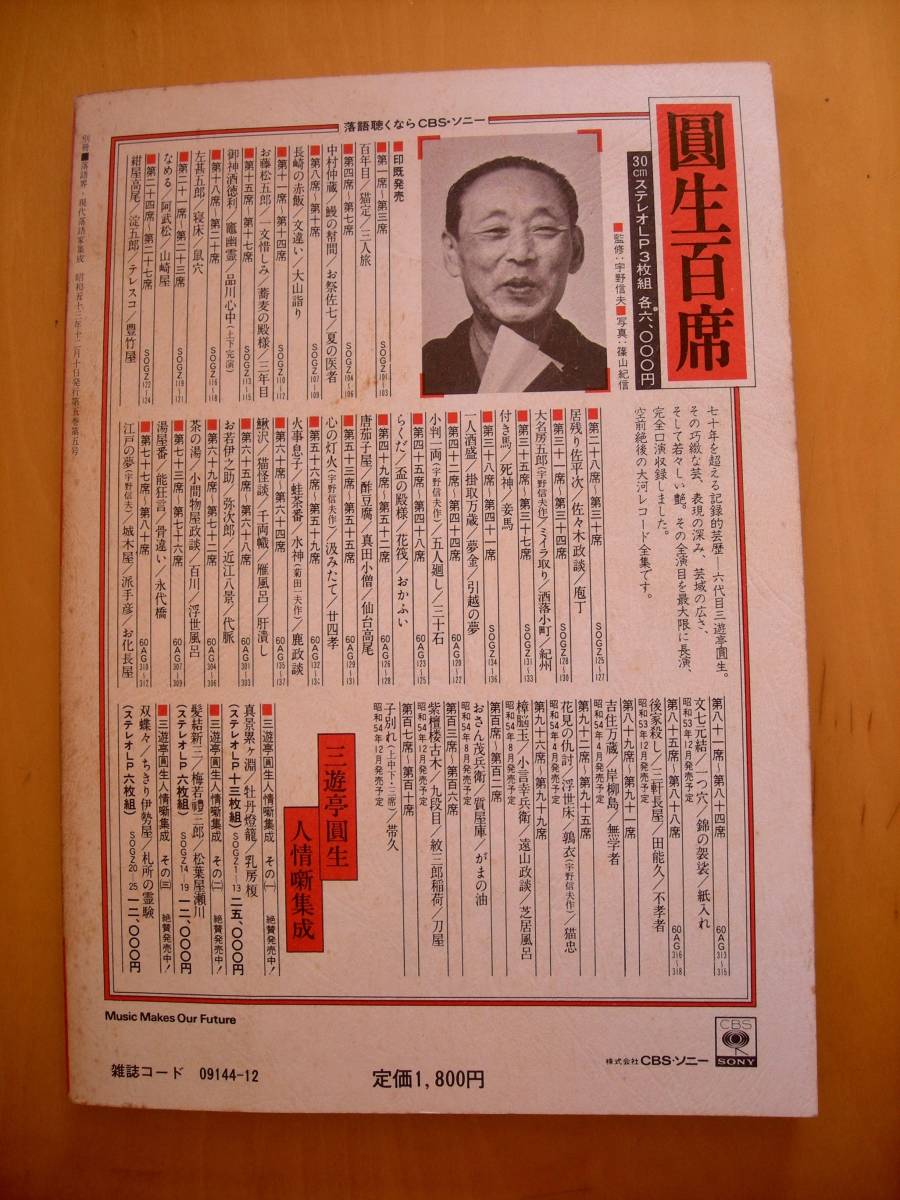 落語聴くならCBS・ソニー
圓生百席
30cmステレオLP3枚組 各六、〇〇〇円
■監修:宇野信夫■写真:篠山紀信
七十年を超える記録的芸歴―六代目三遊亭圓生。
その巧緻な芸、表現の深み、芸域の広さ、
そして若々しい艶。その全演目を最大限に長演、
完全口演収録しました。
空前絶後の大河レコード全集です。
■印既発売
■第一席~第三席 SOGZ101~103
百年目/猫定/三人旅
■第四席~第七席 SOGZ104~106
中村仲蔵/鰻の幇間/お祭佐七/夏の医者
■第八席~第十席 SOGZ107~109
長崎の赤飯/文違い/大山詣り
■第十一席~第十四席 SOGZ110~112
お藤松五郎/一文惜しみ/蕎麦の殿様/三年目
■第十五席~第十七席 SOGZ113~115
御神酒徳利/竈幽霊/品川心中(上下完演)
■第十八席~第二十席 SOGZ116~118
左甚五郎/寝床/鼠穴
■第二十一席~第二十三席 SOGZ119~121
なめる/阿武松/山崎屋
■第二十四席~第二十七席 SOGZ122~124
紺屋高尾/淀五郎/テレスコ/豊竹屋
■第二十八席~第三十席 SOGZ125~127
居残り佐平次/佐々木政談/庖丁
■第三十一席~第三十四席 SOGZ128~130
大名房五郎(宇野信夫作)/ミイラ取り/洒落小町/紀州
■第三十五席~第三十七席 SOGZ131~133
付き馬/死神/妾馬
■第三十八席~第四十一席 SOGZ134~136
一人酒盛/掛取万歳/夢金/引越の夢
■第四十二席~第四十四席 60AG120~122
小判一両(宇野信夫作)/五人廻し/三十石
■第四十五席~第四十八席 60AG123~125
らくだ/盃の殿様/花筏/おかふい
■第四十九席~第五十二席 60AG126~128
唐茄子屋/酢豆腐/真田小僧/仙台高尾
■第五十三席~第五十五席 60AG129~131
心の灯火(宇野信夫作)/汲みたて/廿四孝
■第五十六席~第五十九席 60AG132~134
火事息子/蛙茶番/水神(菊田一夫作)/鹿政談
■第六十席~第六十四席 60AG135~137
鰍沢/猫怪談/千両幟/雁風呂/肝潰し
■第六十五席~第六十八席 60AG301~303
お若伊之助/弥次郎/近江八景/代脈
■第六十九席~第七十二席 60AG304~306
茶の湯/小間物屋政談/百川/浮世風呂
■第七十三席~第七十六席 60AG307~309
湯屋番/能狂言/骨違い/永代橋
■第七十七席~第八十席 60AG310~312
江戸の夢(宇野信夫)/城木屋/派手彦/お化長屋
第八十一席~第八十四席 60AG313~315
文七元結/一つ穴/錦の袈裟/紙入れ
昭和53年12月発売予定
第八十五席~第八十八席 60AG316~318
後家殺し/三軒長屋/田能久/不孝者
昭和53年12月発売予定
第八十九席~第九十一席
吉住万蔵/岸柳島/無学者
昭和54年4月発売予定
第九十二席~第九十五席
花見の仇討/浮世床/鶉衣(宇野信夫作)/猫忠
昭和54年4月発売予定
第九十六席~第九十九席
樟脳玉/小言幸兵衛/遠山政談/芝居風呂
昭和54年8月発売予定
第百席~第百二席
おさん茂兵衛/質屋庫/がまの油
昭和54年8月発売予定
第百三席~第百六席
紫檀楼古木/九段目/紋三郎稲荷/刀屋
昭和54年12月発売予定
第百七席~第百十席
子別れ(上中下・三席)/帯久
昭和54年12月発売予定
三遊亭圓生
人情噺集成
■三遊亭圓生人情噺集成 その(一) 絶賛発売中!
真景累ヶ淵/牡丹燈籠/乳房榎
(ステレオLP十三枚組) SOGZ1~13 二五、〇〇〇円
■三遊亭圓生人情噺集成 その(二) 絶賛発売中!
髪結新三/梅若禮三郎/松葉屋瀬川
(ステレオLP六枚組) SOGZ14~19 一二、〇〇〇円
■三遊亭圓生人情噺集成 その(三) 絶賛発売中!
双蝶々/ちきり伊勢屋/札所の霊験
(ステレオLP六枚組) SOGZ20~25 一二、〇〇〇円
別冊■落語界・現代落語家集成 昭和五十三年十二月十日発行第五巻第五号
Music Makes Our Future
CBS
SONY
株式会社CBS・ソニー
雑誌コード 09144-12
定価1,800円